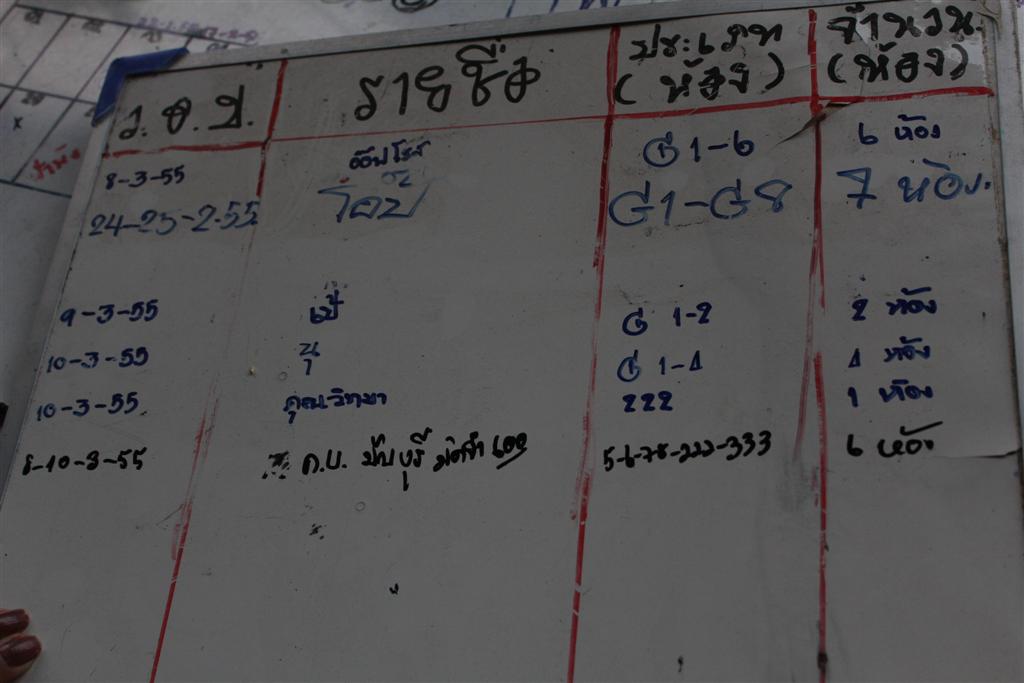 ว.ด.ป. รายชื่อ ประเภท (ห้อง) จำนวน. (ห้อง)
8-3-55 G1-6 6 ห้อง
24-25-2-55 G1-G8 7 ห้อง.
9-3-55 เป้ G 1-2 2 ห้อง
10-3-55 นุ G 1-4 4 ห้อง
10-3-55 คุณวิทยา 222 1 ห้อง
8-10-3-55 ด.บ. มัดจำ 600 5-6-78-222-333 6 ห้อง